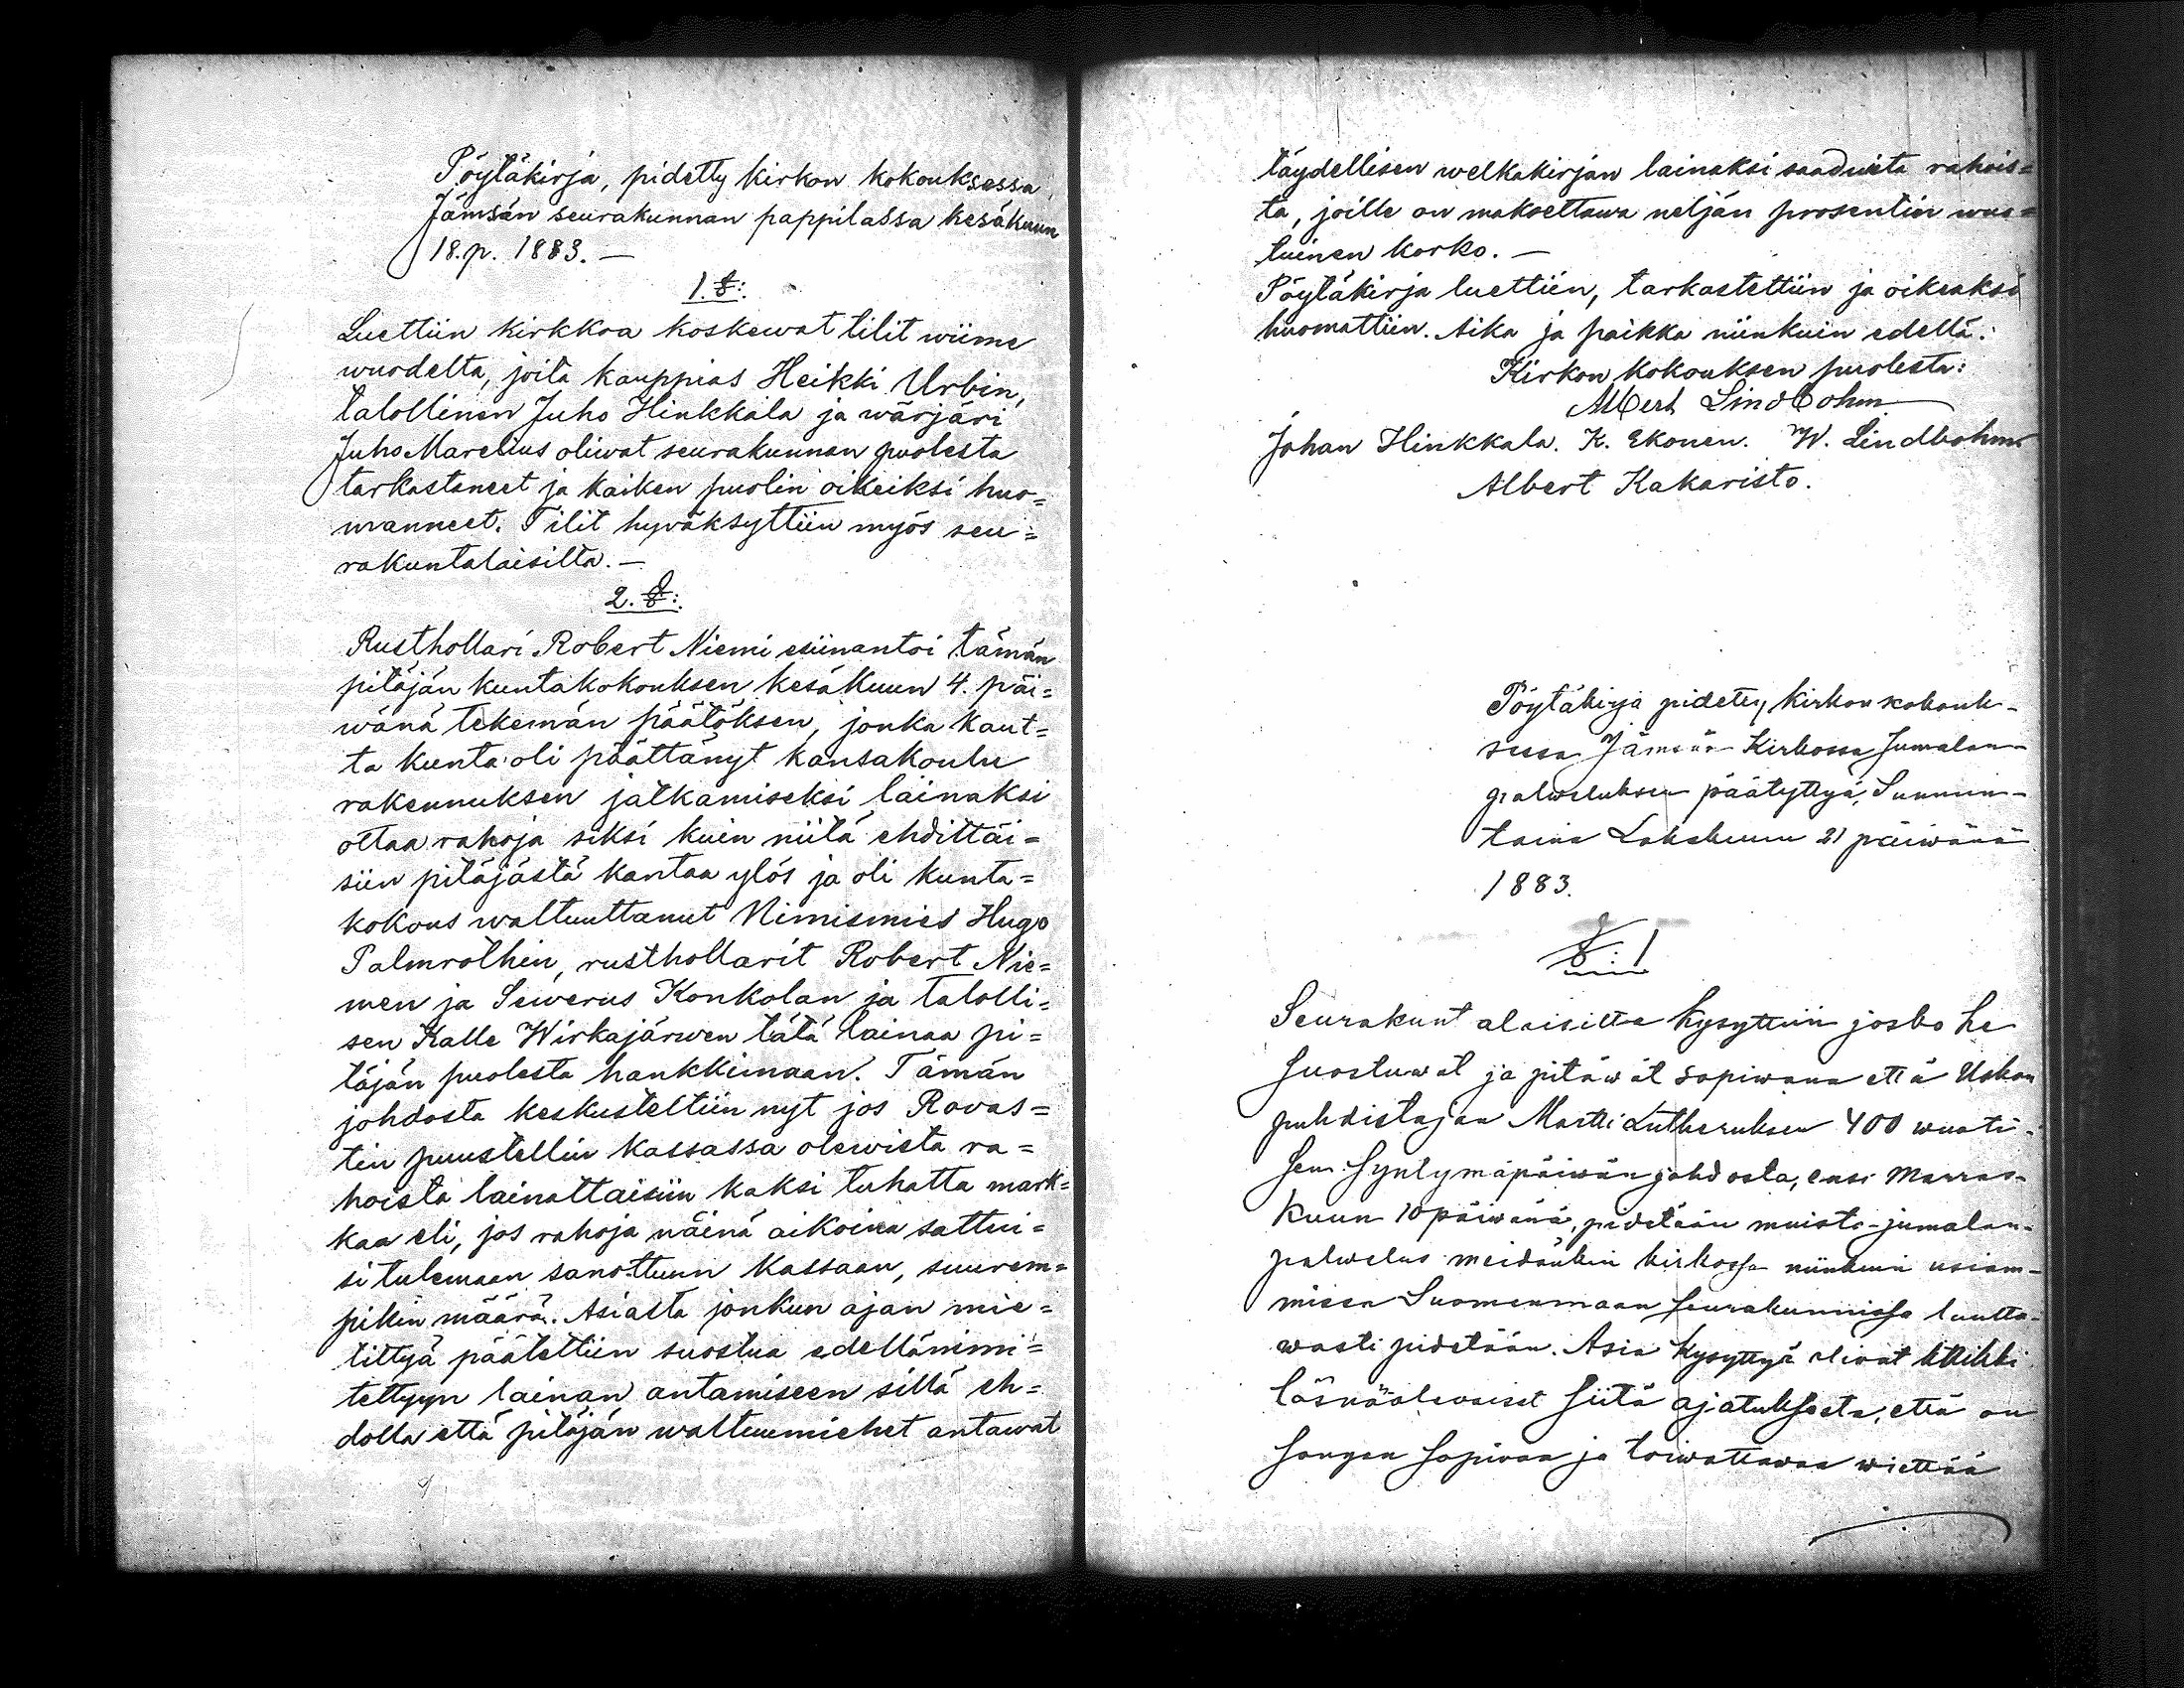 Pöytäkirja, pidetty kirkon kokouksessa
Jämsän seurakunnan pappilassa kesäkuun
18. p. 1883. —
1. §:
Luettiin kirkkoa koskewat tilit wiime
wuodelta, joita kauppias Heikki Urbin,
talollinen Juho Hinkkala ja wärjäri
Juho Marelius oliwat seurakunnan puolesta
tarkastaneet ja kaiken puolin oikeiksi huo=
manneet. Tilit hyväksyttiin myös seu=
rakuntalaisilta. —
2. §:
Rusthollari Robert Niemi esiinantoi tämän
pitäjän kuntakokouksen kesäkuun 4. päi=
wänä tekemän päätöksen, jonka kaut=
ta kunta oli päättänyt kansakoulu
rakennuksen jatkamiseksi lainaksi
ottaa rahoja siksi kuin niitä ehdittäi=
siin pitäjästä kantaa ylös ja oli kunta=
kokous waltuuttanut Nimismies Hugo
Palmrothin, rusthollarit Robert Nie=
men ja Sewerus Konkolan ja talolli=
sen Kalle Wirkajärwen tätä lainaa pi=
täjän puolesta hankkimaan. Tämän
johdosta keskusteltiin nyt jos Rovas=
tin puustellin kassassa olewista ra=
hoista lainattaisiin kaksi tuhatta mark=
kaa eli, jos rahoja näinä aikoina sattui=
si tulemaan sanottuun kassaan, suurem=
pikin määrä. Asiasta jonkun ajan mie=
tittyä päätettiin suostua edellänimi=
tettyyn lainan antamiseen sillä eh=
dolla että pitäjän waltuumiehet antawat
täydellisen welkakirjan lainaksi saaduista rahois=
ta, joille on maksettawa neljän prosentin wuo=
tuinen korko. —
Pöytäkirja luettiin, tarkastettiin ja oikeaksi
huomattiin. Aika ja paikka niinkuin edellä.
Kirkon kokouksen puolesta:
Albert Lindbohm
Johan Hinkkala. K. Ekonen. W. Lindbohm
Albert Kakaristo.
Pöytäkirja pidetty kirkon kokouk-
sessa Jämsän Kirkossa Jumalan-
palweluksen päätyttyä, Sunnun-
taina Lokakuun 21 päiwänä
1883.
§: 1
Seurakuntalaisilta kysyttiin josko he
suostuwat ja pitäwät sopiwana että Uskon
puhdistajan Martti Lutheruksen 400 wuoti-
sen syntymäpäiwän johdosta, ensi Marras-
kuun 10 päiwänä, pidetään muisto-jumalan-
palwelus meidänkin kirkossa niinkuin usiam-
missa Suomenmaan seurakunnissa luulta-
wasti pidetään. Asia kysyttyä oliwat kaikki
läsnäolewaiset siitä ajatuksesta, että on
sangen sopiwaa ja toiwottawaa wiettää